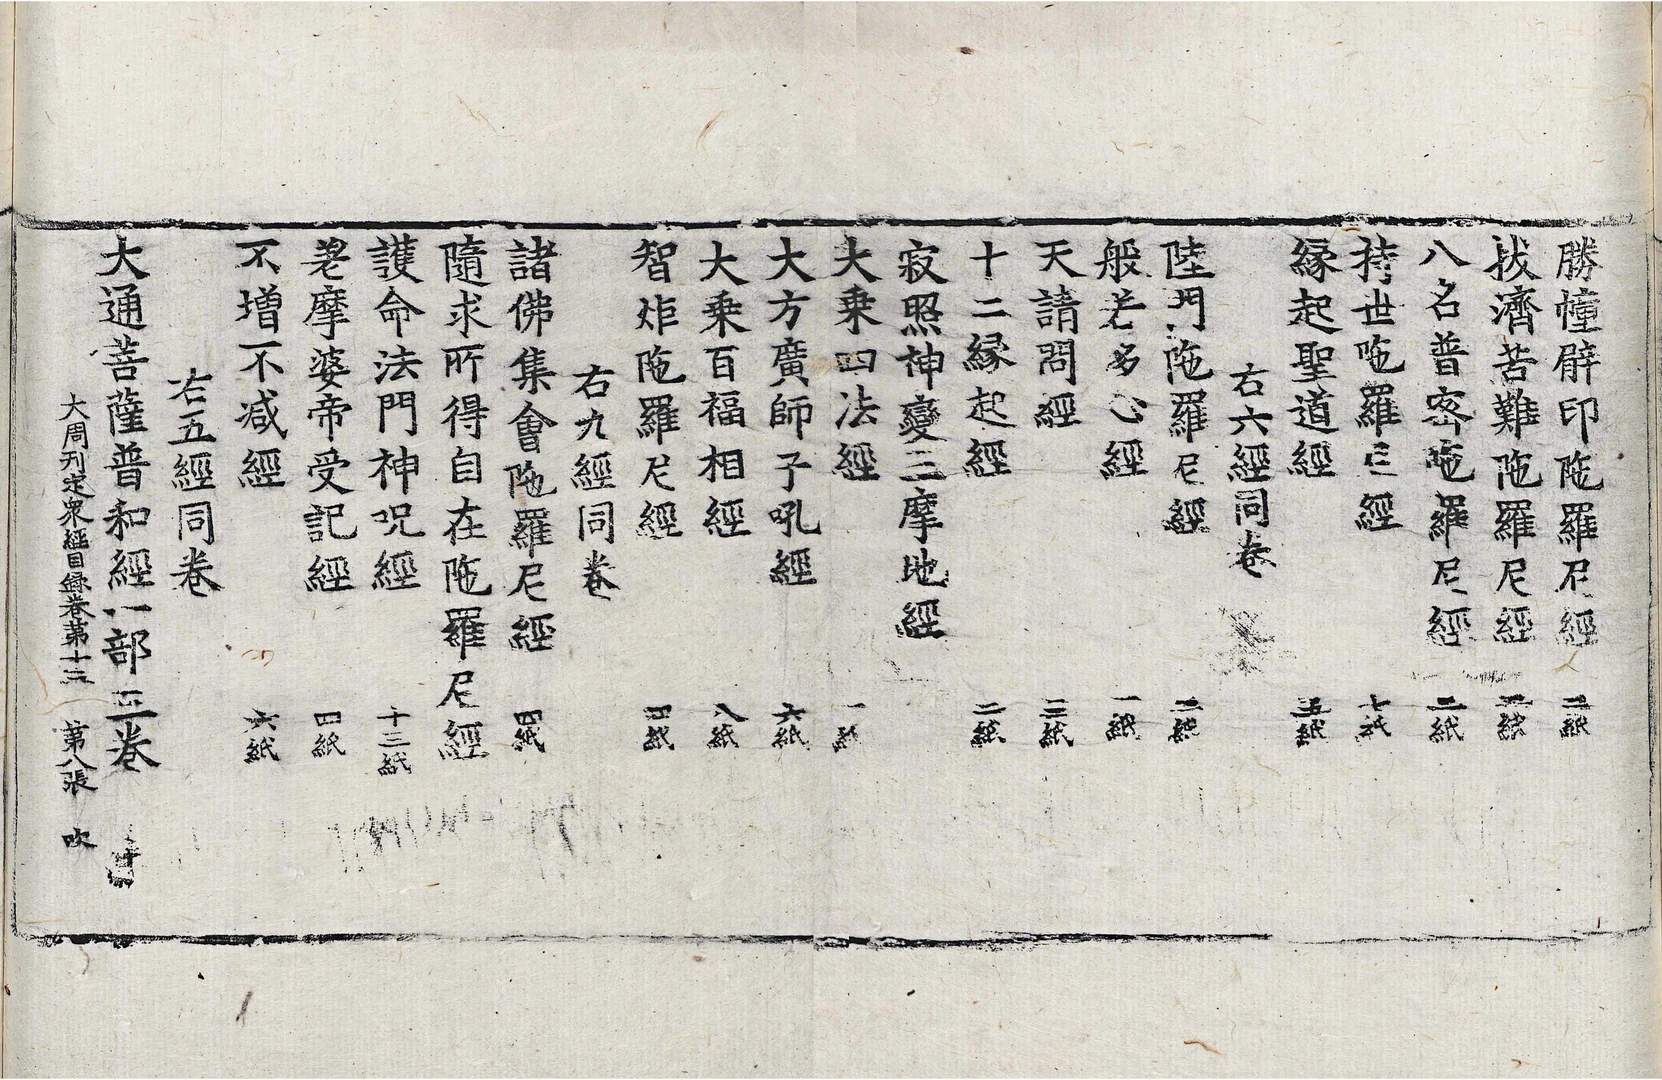 勝幢臂印陁羅尼經 二紙
拔濟苦難陁羅尼經 二紙
八名普密陁羅尼經 二紙
持世陁羅尼經 七紙
縁起聖道經 五紙
右六經同卷
陸門陁羅尼經 二紙
般若多心經 一紙
天請問經 三紙
十二縁起經 二紙
寂照神變三摩地經
大乗四法經 一紙
大方廣師子吼經 六紙
大乗百福相經 八紙
智炬陁羅尼經 四紙
右九經同卷
諸佛集會陁羅尼經 四紙
隨求所得自在陁羅尼經
護命法門神呪經 十三紙
差摩婆帝受記經 四紙
不増不减經 六紙
右五經同卷
大通菩薩普和經一部三卷
大周刊定衆經目録卷第十三 第八張 吹